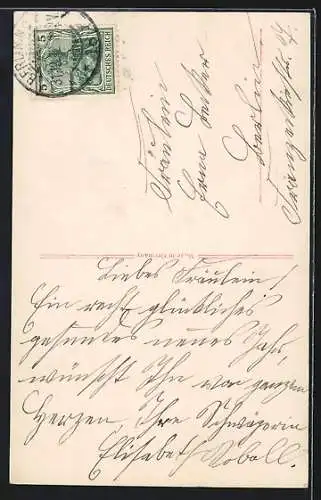 BERLIN
DEUTSCHES REICH
5
Fräulein
Erna
Berlin
Made in Germany
Liebes Fräulein!
Ein recht glückliches
gesundes neues Jahr,
wünscht Ihn von ganzem
Herzen, Ihre Schwägerin
Elisabeth